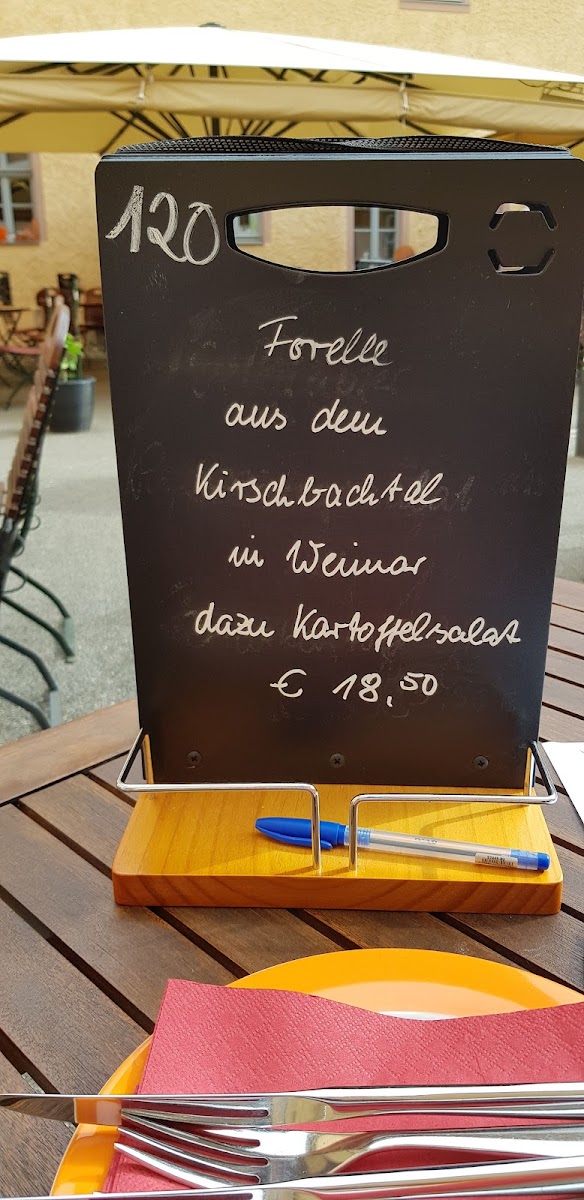 120
Forelle
aus dem
Kirschbachtal
in Weimar
dazu Kartoffelsalat
€ 18,50